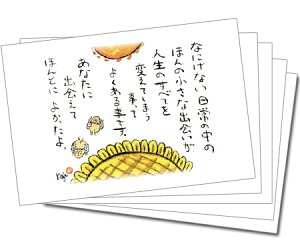 なにげない日常の中の
ほんの小さな出会いが
人生のすべてを
変えてしまう
事って
よくある事です。
あなたに
出会えて
ほんとによかったよ。